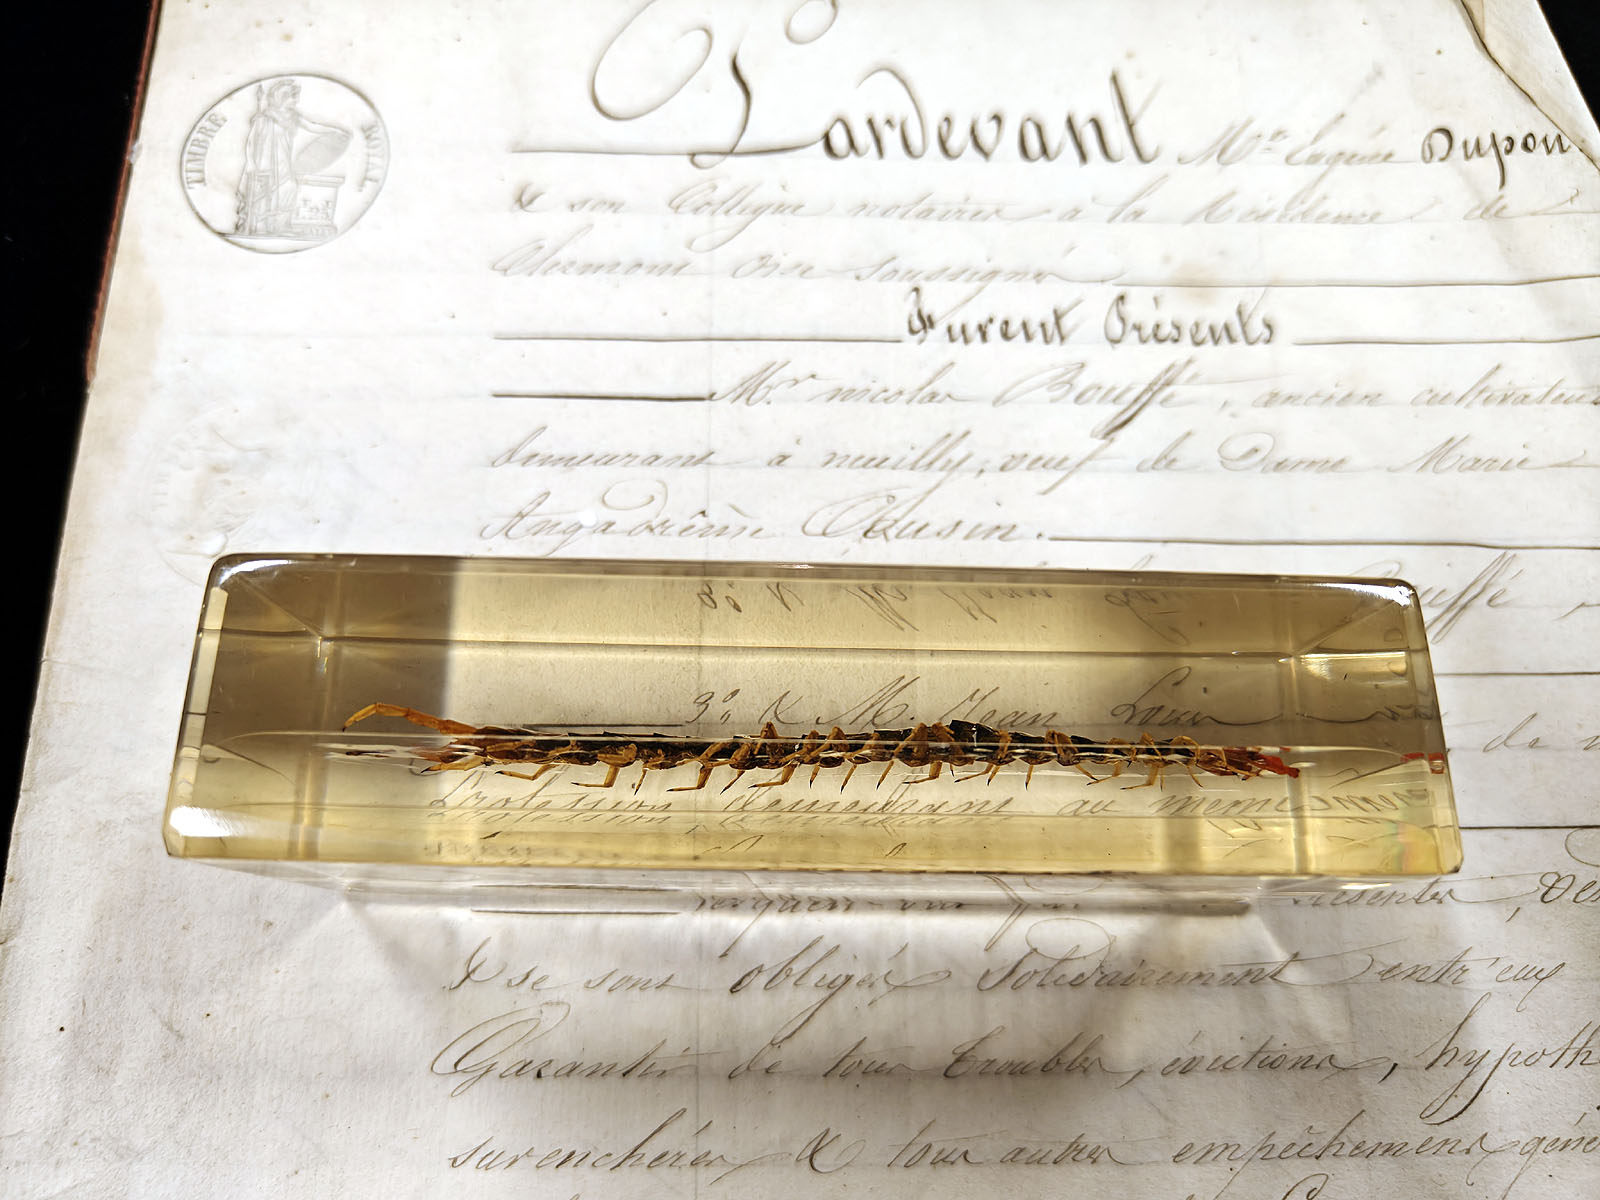 TIMBRE ROYAL
Pardevant Mᵉ Eugène Dupon
& son Collègue notaires à la Résidence de
Clermont Oise soussignés
Furent Présents
Mr. nicolas Bouffé, ancien cultivateur
demeurant à neuilly, veuf de Dame Marie
Angadrême Cousin.
ouffé
3° & M. Jean Louis
, de
Profession demeurant au même
résentes, Des
& se sont obligés Solidairement entr'eux
Garantir de tous troubles, évictions, hypoth
surenchères & tous autres empêchemens géné